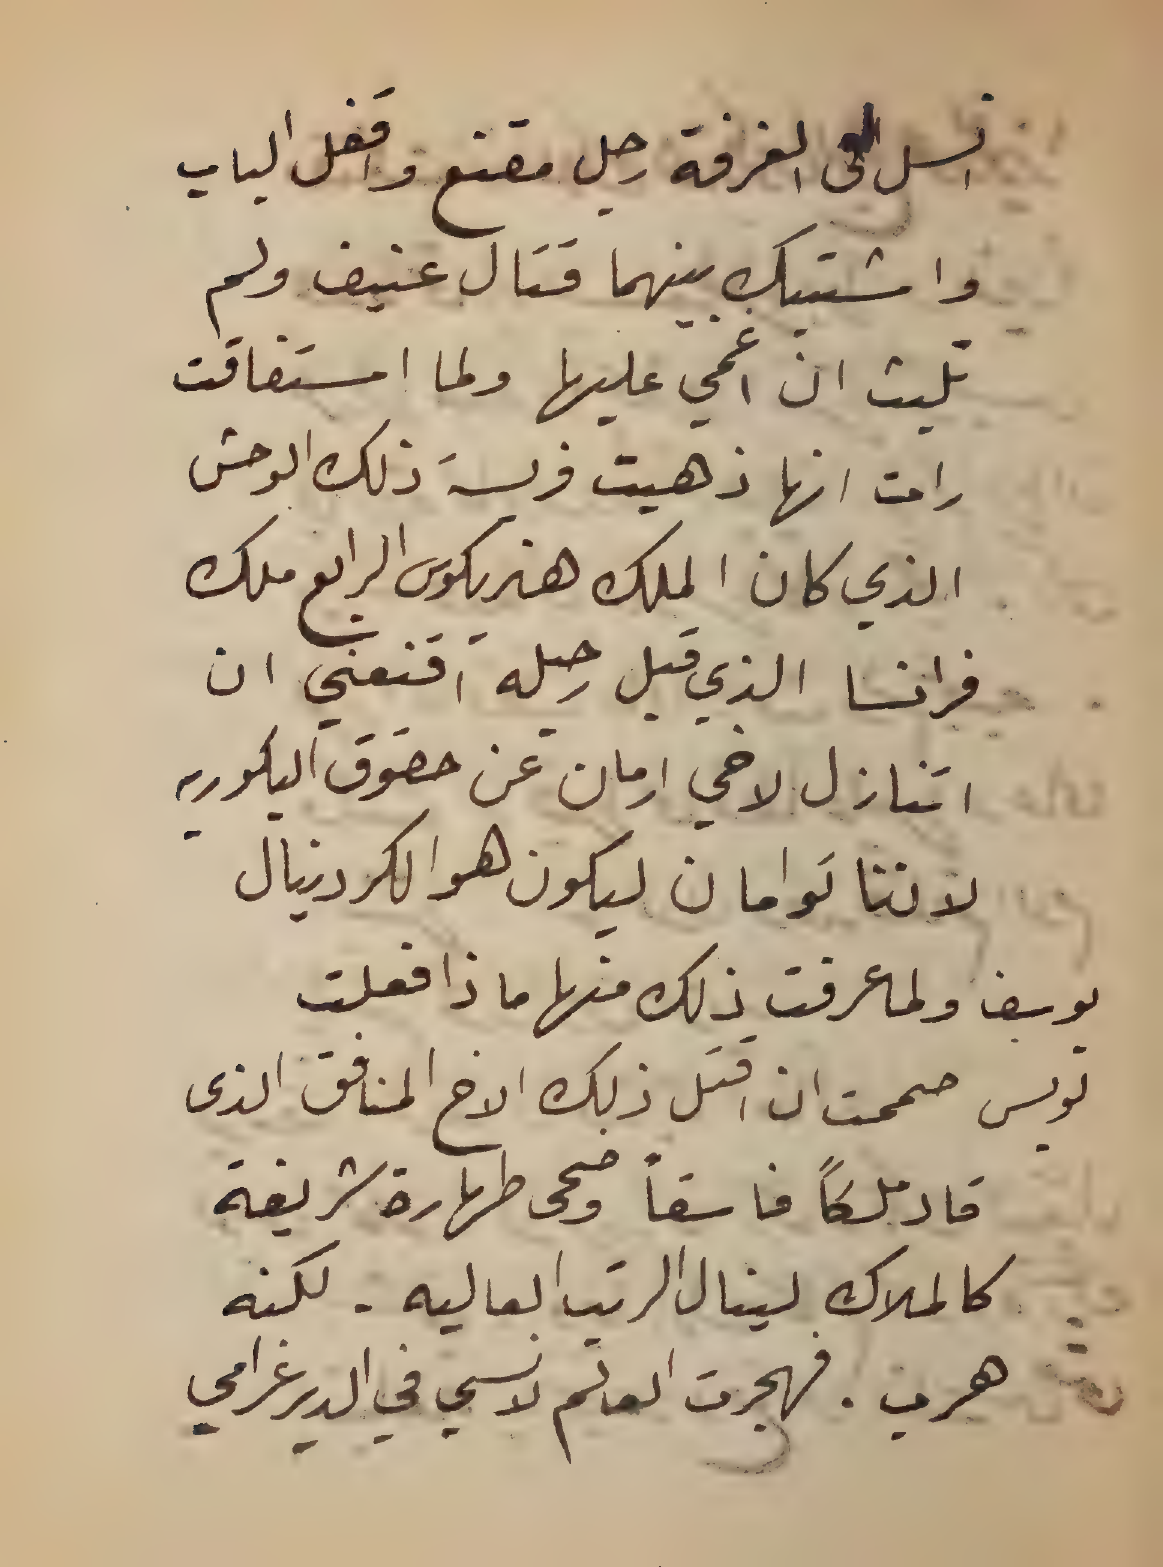 انسل الى الغرفة رجل مقنع واقفل الباب
واشتبك بينهما قتال عنيف ولم
تلبث ان اغمي عليها ولما استفاقت
رات انها ذهبت فريسة ذلك الوحش
الذي كان الملك هنريكوس الرابع ملك
فرانسا الذي قبل رحيله اقنعني ان
اتنازل لاخي ارمان عن حقوق البكوريه
لاننا توامان ليكون هو الكردينال
يوسف ولما عرفت ذلك منها ماذا فعلت
لويس صممت ان اقتل ذلك الاخ المنافق الذى
قاد ملكاً فاسقاً وضحى طهارة شريفة
كالملاك لينال الرتب العاليه - لكنه
هرب . فهجرت العالم لانسي في الدير غرامي